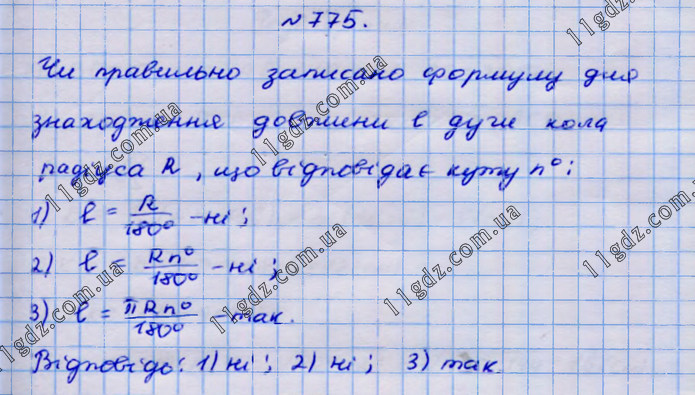 №775.
Чи правильно записано формулу для
знаходження довжини l дуги кола
радіуса R, що відповідає куту n°:
1) l = R/180° - ні;
2) l = Rn°/180° - ні;
3) l = πRn°/180° - так.
Відповідь: 1) ні; 2) ні; 3) так.
11gdz.com.ua
11gdz.com.ua
11gdz.com.ua
11gdz.com.ua
11gdz.com.ua
11gdz.com.ua
11gdz.com.ua